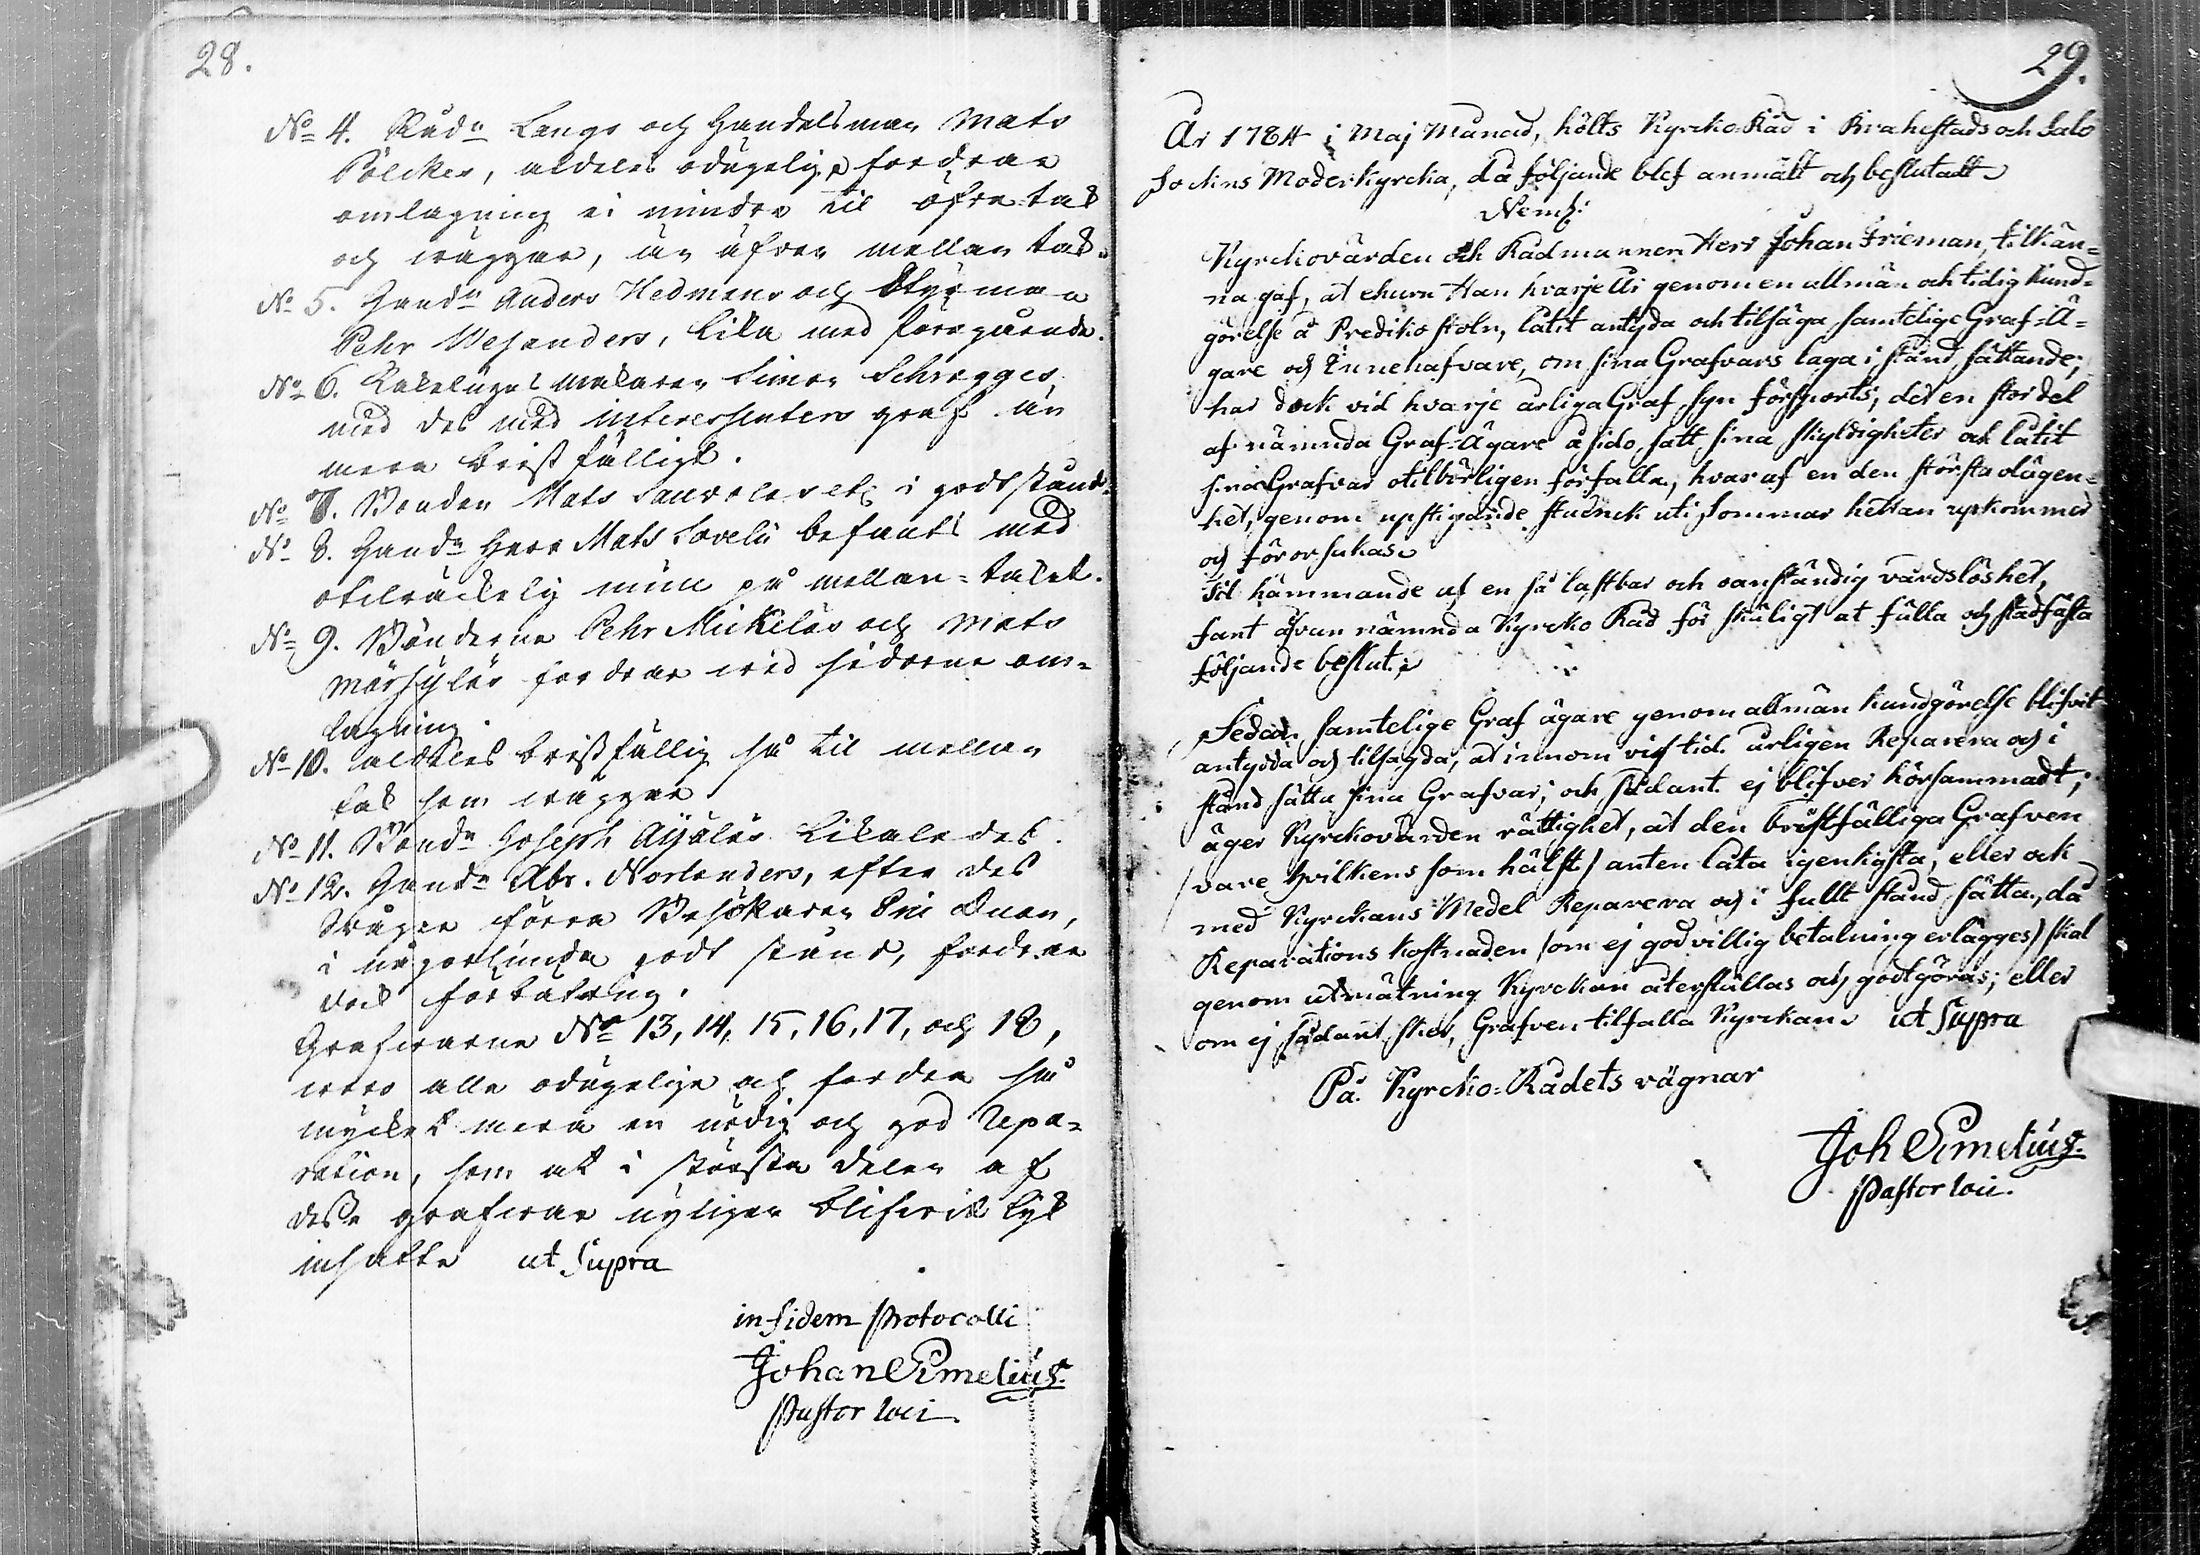 28.
No 4. Rådn Langs och Handelsman Mats
Pölckes, aldeles odugelige fordrar
omlagning ei mindre til öfre-tak
och wäggar, än äfven mellan tak.
No 5. Handn Anders Hedmans och Styrman
Pehr Wesanders, lika med föregående.
No 6. Kakelugns makaren Simon Schrogges,
med des med interessenters graf än
mera bristfälligt.
No 7. Bonden Mats etc i godt stånd.
No 8. Handn Herr Mats Sovelii befants med
otilräckelig mull på mellan-taket.
No 9. Bönderna Pehr Mickiläs och Mats
Marsyläs fordrar wid sidorna om-
lagning.
No 10. aldeles bristfällig så til mellan
tak som wäggar
No 11. Bondn Joseph Äijäläs likaledes.
No 12. Handn Abr. Norlanders, efter des
Svåger förra Besökaren Eric
i någorlunda godt stånd, fordrar
dock förbätring.
Grafwarne No 13, 14, 15, 16, 17, och 18,
woro alla odugelige och fordra så
mycket mera en nödig och god repa-
ration, som at i största delen af
dessa grafwar nyligen blifwit lik
insatte ut Supra
in fidem Protocolli
Johan Simelius.
Pastor loci
29.
År 1784 i Maj Månad, hölts Kyrcko-Råd i Brahestads och Salo
Sockns Moderkyrcka, då följande blef anmält och beslutatt
Neml:
Kyrckovärden och Rådmannen Herr Johan Frieman, tilkän-
na gaf, at ehuru Han hvarje År genom en allmän och tidig kund-
görelse å Predikostoln, låtit antyda och tilsäga samtelige Graf-Ä-
gare och Innehafvare, om sina Grafvars laga i stånd sättande;
har dock vid hvarje årliga Graf syn försports, det en stor del
af nämnda Graf-Ägare åsido satt sina skyldigheter och låtit
sina Grafvar otilbörligen förfalla, hvaraf en den största olägen-
het, genom upstigande stanck uti Sommar hettan upkommer
och förorsakas.
Til hämmande af en så lastbar och oanständig vårdslöshet,
fant ofvan nämnda Kyrcko Råd för skäligt at fälla och stadfästa
följande beslut:
Sedan samtelige Graf ägare genom allmän kundgörelse blifvit
antydda och tilsagda, at innom viss tid årligen Reparera och i
stånd sätta sina Grafvar; och sådant ej blifver hörsammadt;
äger Kyrckovärden rättighet, at den bristfälliga Grafven
/vare hvilkens som hälst/ anten låta igenkasta, eller ock
med Kyrckans Medel Reparera och i fullt stånd sätta, då
Reparations kostnaden /om ej godvillig betalning erlägges/ skal
genom utmätning Kyrckan återställas och godtgöras; eller
om ej sådant sker, Grafven tilfalla Kyrckan. ut Supra
På Kyrcko-Rådets vägnar
Joh Simelius.
Pastor loci.